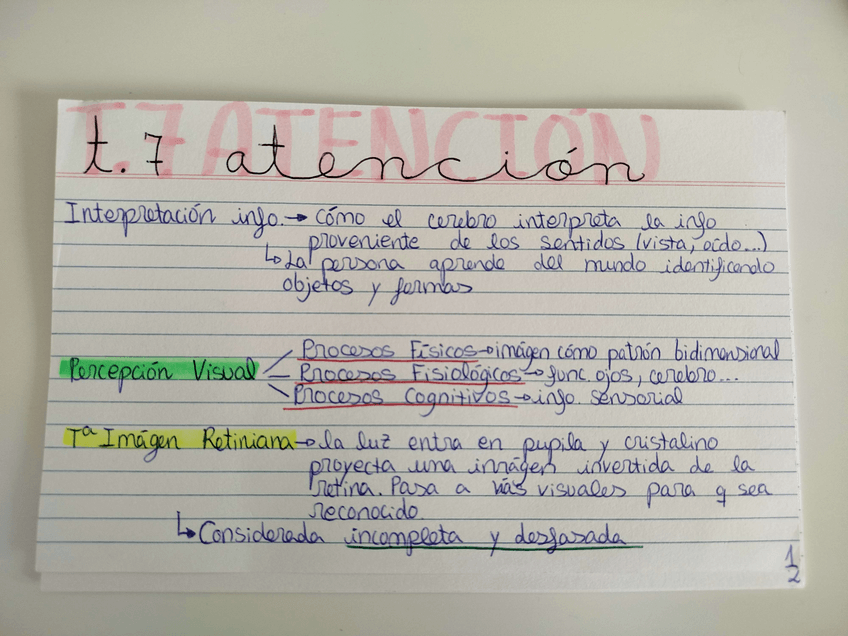 T.7 ATENCIÓN
t. 7 atención
Interpretación info. → cómo el cerebro interpreta la info
proveniente de los sentidos (vista, oído...)
↳ La persona aprende del mundo identificando
objetos y formas
Procesos Físicos → imágen cómo patrón bidimensional
Percepción Visual — Procesos Fisiológicos → func. ojos, cerebro...
Procesos Cognitivos → info. sensorial
Tª Imágen Retiniana → la luz entra en pupila y cristalino
proyecta una imágen invertida de la
retina. Pasa a vías visuales para q sea
reconocido.
↳ Considerada incompleta y desfasada
1/2